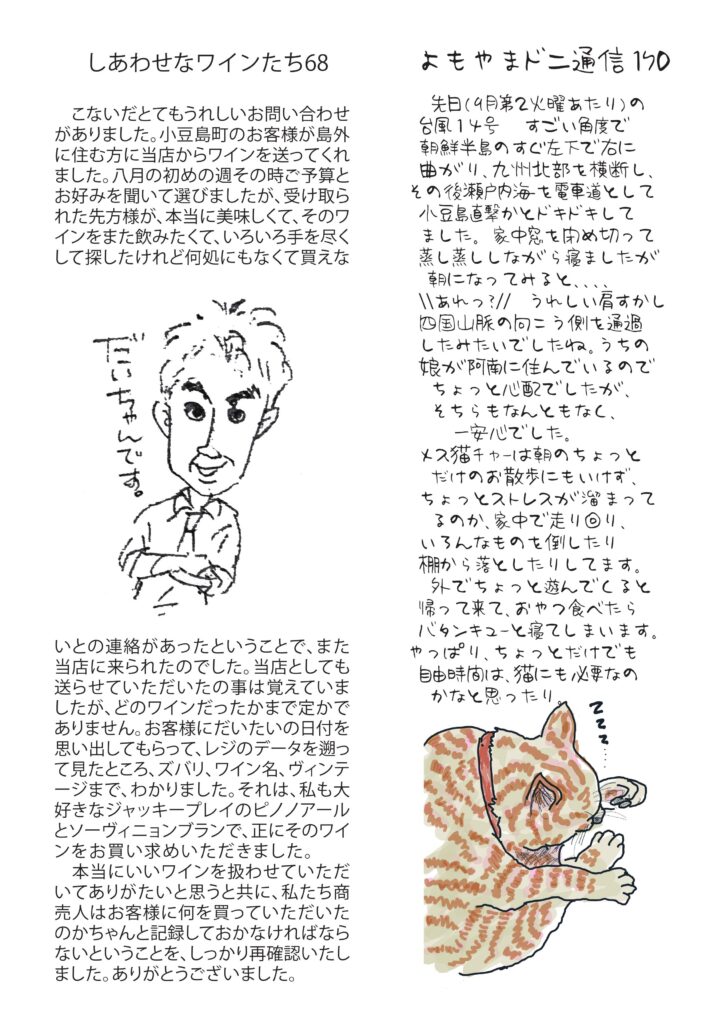 しあわせなワインたち68
こないだとてもうれしいお問い合わせ
がありました。小豆島町のお客様が島外
に住む方に当店からワインを送ってくれ
ました。八月の初めの週その時ご予算と
お好みを聞いて選びましたが、受け取ら
れた先方様が、本当に美味しくて、そのワ
インをまた飲みたくて、いろいろ手を尽く
して探したけれど何処にもなくて買えな
だいちゃんです。
いとの連絡があったということで、また
当店に来られたのでした。当店としても
送らせていただいたの事は覚えていま
したが、どのワインだったかまで定かで
ありません。お客様にだいたいの日付を
思い出してもらって、レジのデータを遡っ
て見たところ、ズバリ、ワイン名、ヴィンテ
ージまで、わかりました。それは、私も大
好きなジャッキープレイのピノノアール
とソーヴィニョンブランで、正にそのワイ
ンをお買い求めいただきました。
本当にいいワインを扱わせていただ
いてありがたいと思うと共に、私たち商
売人はお客様に何を買っていただいた
のかちゃんと記録しておかなければなら
ないということを、しっかり再確認いたし
ました。ありがとうございました。
よもやまドニ通信170
先日(9月第2火曜あたり)の
台風14号 すごい角度で
朝鮮半島のすぐ左下で右に
曲がり、九州北部を横断し、
その後瀬戸内海を電車道として
小豆島直撃かとドキドキして
ました。家中窓を閉め切って
蒸し蒸ししながら寝ましたが
朝になってみると、、、、
\\あれっ?// うれしい肩すかし
四国山脈の向こう側を通過
したみたいでしたね。うちの
娘が阿南に住んでいるので
ちょっと心配でしたが、
そちらもなんともなく、
一安心でした。
メス猫チャーは朝のちょっと
だけのお散歩にもいけず、
ちょっとストレスが溜まって
るのか、家中で走り回り、
いろんなものを倒したり
棚から落としたりしてます。
外でちょっと遊んでくると
帰って来て、おやつ食べたら
バタンキューと寝てしまいます。
やっぱり、ちょっとだけでも
自由時間は、猫にも必要なの
かなと思ったり。
zzz....